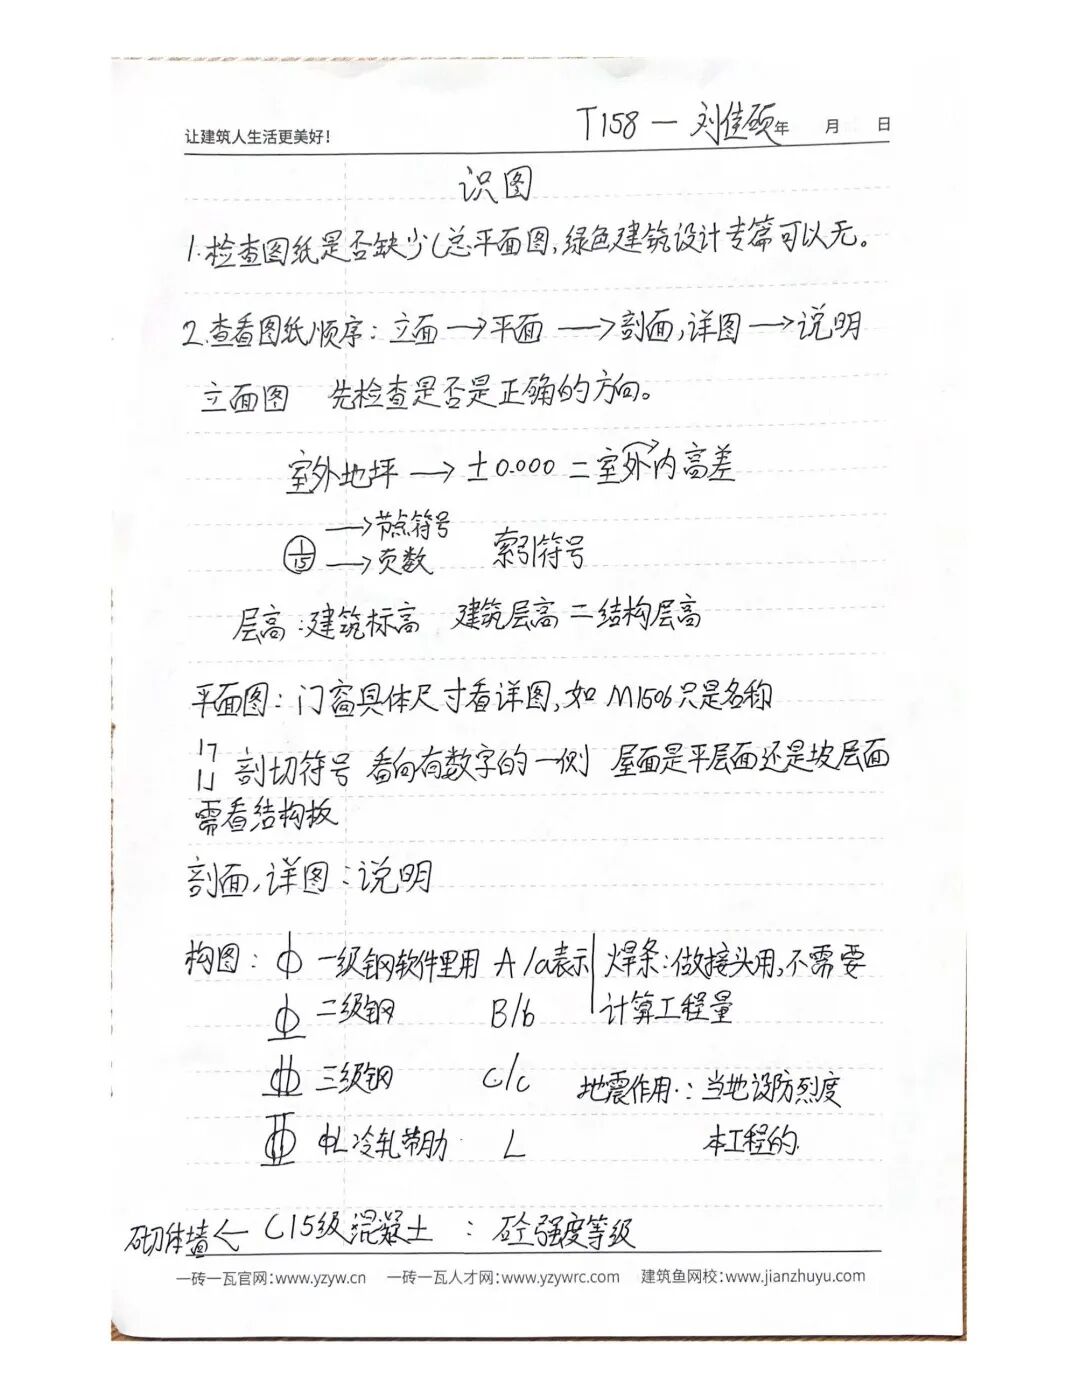 让建筑人生活更美好!
T158 — 刘佳硕 年 月 日
识图
1.检查图纸是否缺少(总平面图,绿色建筑设计专篇可以无。
2.查看图纸顺序:立面→平面→剖面,详图→说明
立面图 先检查是否是正确的方向。
室外地坪→±0.000=室外内高差
→节点符号
1/15 →页数 索引符号
层高:建筑标高 建筑层高=结构层高
平面图:门窗具体尺寸看详图,如M1506只是名称
剖切符号 看向有数字的一侧 屋面是平层面还是坡层面
需看结构板
剖面,详图:说明
构图:ϕ 一级钢软件里用 A/a表示 焊条:做接头用,不需要
二级钢 B/b 计算工程量
三级钢 C/c 地震作用:当地设防烈度
ΦL冷轧带肋 L 本工程的
砌体墙← C15级混凝土 :砼强度等级
一砖一瓦官网:www.yzyw.cn 一砖一瓦人才网:www.yzywrc.com 建筑鱼网校:www.jianzhuyu.com